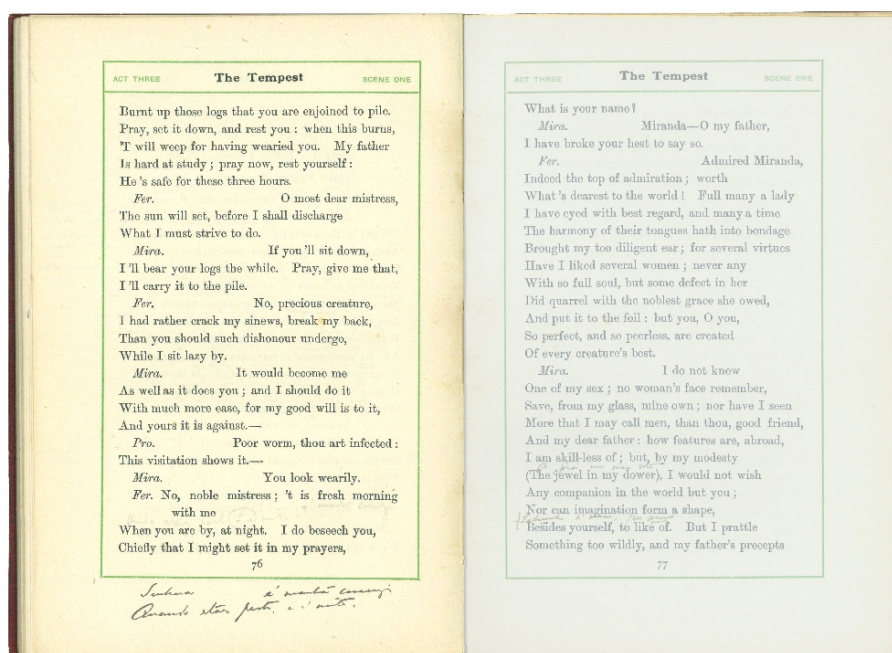 ACT THREE The Tempest SCENE ONE
Burnt up those logs that you are enjoined to pile.
Pray, set it down, and rest you : when this burns,
'T will weep for having wearied you. My father
Is hard at study ; pray now, rest yourself :
He 's safe for these three hours.
Fer. O most dear mistress,
The sun will set, before I shall discharge
What I must strive to do.
Mira. If you 'll sit down,
I 'll bear your logs the while. Pray, give me that,
I 'll carry it to the pile.
Fer. No, precious creature,
I had rather crack my sinews, break my back,
Than you should such dishonour undergo,
While I sit lazy by.
Mira. It would become me
As well as it does you ; and I should do it
With much more ease, for my good will is to it,
And yours it is against.—
Pro. Poor worm, thou art infected :
This visitation shows it.—
Mira. You look wearily.
Fer. No, noble mistress ; 't is fresh morning
with me
When you are by, at night. I do beseech you,
Chiefly that I might set it in my prayers,
76
Senhora é manhã
Quando estás é noite.
ACT THREE The Tempest SCENE ONE
What is your name?
Mira. Miranda—O my father,
I have broke your hest to say so.
Fer. Admired Miranda,
Indeed the top of admiration ; worth
What 's dearest to the world ! Full many a lady
I have eyed with best regard, and many a time
The harmony of their tongues hath into bondage
Brought my too diligent ear ; for several virtues
Have I liked several women ; never any
With so full soul, but some defect in her
Did quarrel with the noblest grace she owed,
And put it to the foil : but you, O you,
So perfect, and so peerless, are created
Of every creature's best.
Mira. I do not know
One of my sex ; no woman's face remember,
Save, from my glass, mine own ; nor have I seen
More that I may call men, than thou, good friend,
And my dear father : how features are, abroad,
I am skill-less of ; but, by my modesty
(The jewel in my dower), I would not wish
Any companion in the world but you ;
Nor can imagination form a shape,
Besides yourself, to like of. But I prattle
Something too wildly, and my father's precepts
77